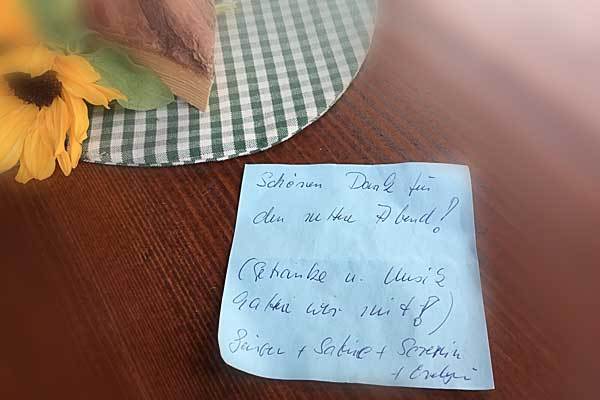 Schönen Dank für
den netten Abend!
(Getränke u. Musik
haben wir mit!)
+ Sabine + Severin
+ Evelyn